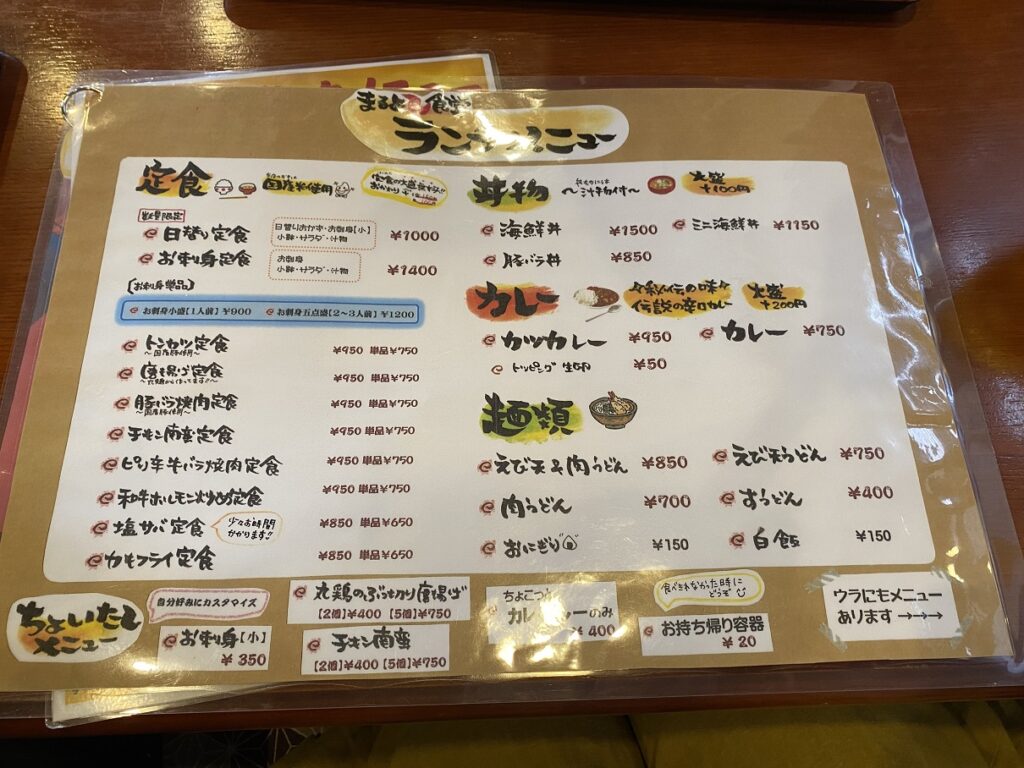 食堂
ランチメニュー
定食
国産米使用
数量限定
日替り定食
日替りおかず・お刺身[小]
小鉢・サラダ・汁物
¥1000
お刺身定食
お刺身
小鉢・サラダ・汁物
¥1400
[お刺身単品]
お刺身小盛[1人前]¥900 お刺身五点盛[2〜3人前]¥1200
トンカツ定食 ¥950 単品¥750
〜国産豚使用〜
唐揚げ定食 ¥950 単品¥750
豚バラ焼肉定食 ¥950 単品¥750
〜国産豚使用〜
チキン南蛮定食 ¥950 単品¥750
ピリ辛牛バラ焼肉定食 ¥950 単品¥750
和牛ホルモン炒め定食 ¥950 単品¥750
塩サバ定食 ¥850 単品¥650
少々お時間
かかります!!
カキフライ定食 ¥850 単品¥650
丼物
〜汁物付〜
大盛
+100円
海鮮丼 ¥1500
ミニ海鮮丼 ¥1150
豚バラ丼 ¥850
カレー
伝説の辛口カレー
大盛
+200円
カツカレー ¥950
カレー ¥750
トッピング 生卵 ¥50
麺類
えび天&肉うどん ¥850
えび天うどん ¥750
肉うどん ¥700
すうどん ¥400
おにぎり ¥150
白飯 ¥150
ちょいたし
メニュー
自分好みにカスタマイズ
お刺身[小]
¥350
丸鶏のぶつ切り唐揚げ
[2個]¥400 [5個]¥750
チキン南蛮
[2個]¥400 [5個]¥750
ちょこっと
カレールーのみ
¥400
食べきれなかった時に
どうぞ
お持ち帰り容器
¥20
ウラにもメニュー
あります→→→